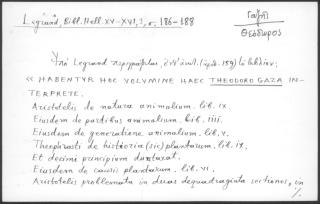 Legrand, Bibl. Hell. XV-XVI, 1, σ. 186-188
Γαζῆς
Θεόδωρος
Ὑπὸ Legrand περιγράφεται, ἀριθ. 159) τὸ βιβλίον:
« HABENTUR HOC VOLUMINE HAEC THEODORO GAZA IN-
TERPRETE.
Aristotelis de natura animalium. lib. ix.
Eiusdem de partibus animalium. lib. iiii.
Eiusdem de generatione animalium. lib. v.
Theophrasti de historia (sic) plantarum. lib. ix.
Et decimi principium duntaxat.
Eiusdem de causis plantarum. lib. vi.
Aristotelis problemata in duas dequadraginta sectiones, in
·/.